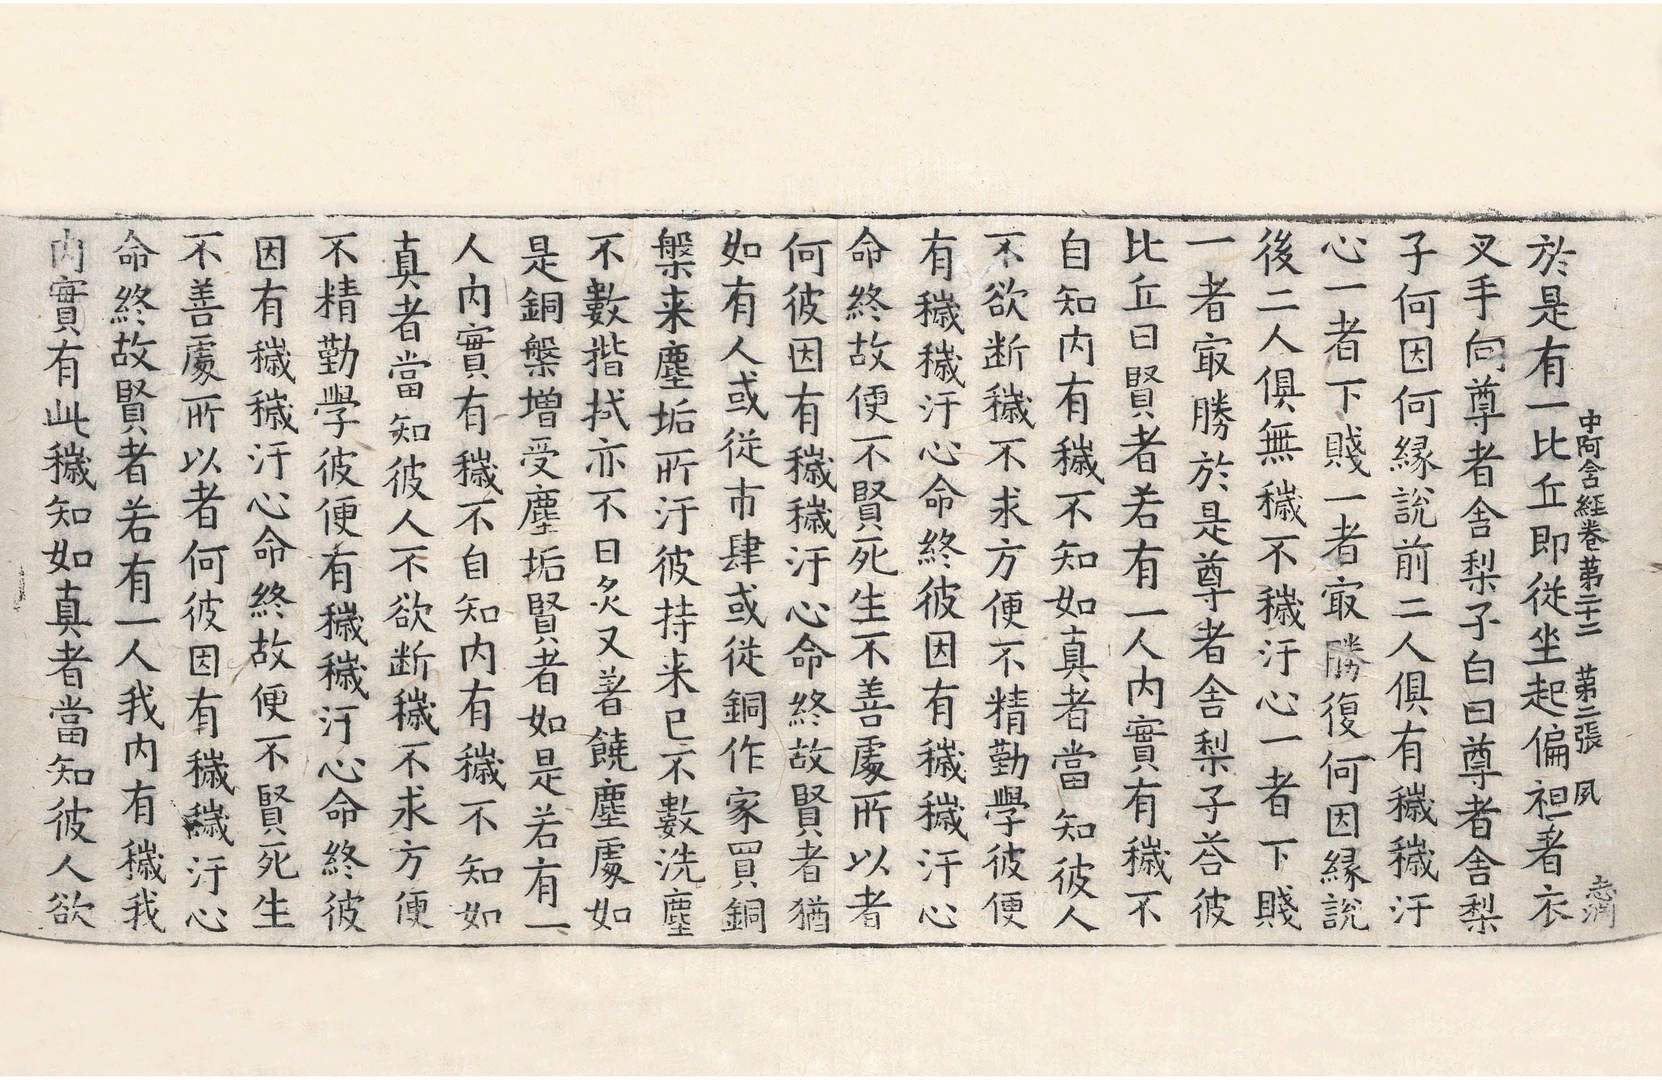 中阿含經卷第二十二　第二張　夙
志潤
於是有一比丘即從坐起偏袒著衣
叉手向尊者舍梨子白曰尊者舍梨
子何因何緣說前二人俱有穢穢汙
心一者下賤一者㝡勝復何因緣說
後二人俱無穢不穢汙心一者下賤
一者㝡勝於是尊者舍梨子荅彼
比丘曰賢者若有一人内實有穢不
自知内有穢不知如真者當知彼人
不欲断穢不求方便不精勤學彼便
有穢穢汙心命終彼因有穢穢汙心
命終故便不賢死生不善處所以者
何彼因有穢穢汙心命終故賢者猶
如有人或從市肆或從銅作家買銅
槃来塵垢所汙彼持来已不數洗塵
不數揩拭亦不日炙又著饒塵處如
是銅槃增受塵垢賢者如是若有一
人内實有穢不自知内有穢不知如
真者當知彼人不欲断穢不求方便
不精勤學彼便有穢穢汙心命終彼
因有穢穢汙心命終故便不賢死生
不善處所以者何彼因有穢穢汙心
命終故賢者若有一人我内有穢我
内實有此穢知如真者當知彼人欲